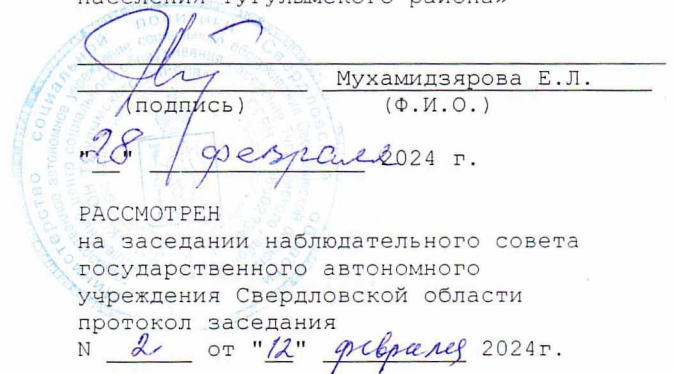 населения Тугулымского района»
Мухамидзярова Е.Л.
(подпись) (Ф.И.О.)
"28" февраля 2024 г.
РАССМОТРЕН
на заседании наблюдательного совета
государственного автономного
учреждения Свердловской области
протокол заседания
N 2 от "12" февраля 2024г.